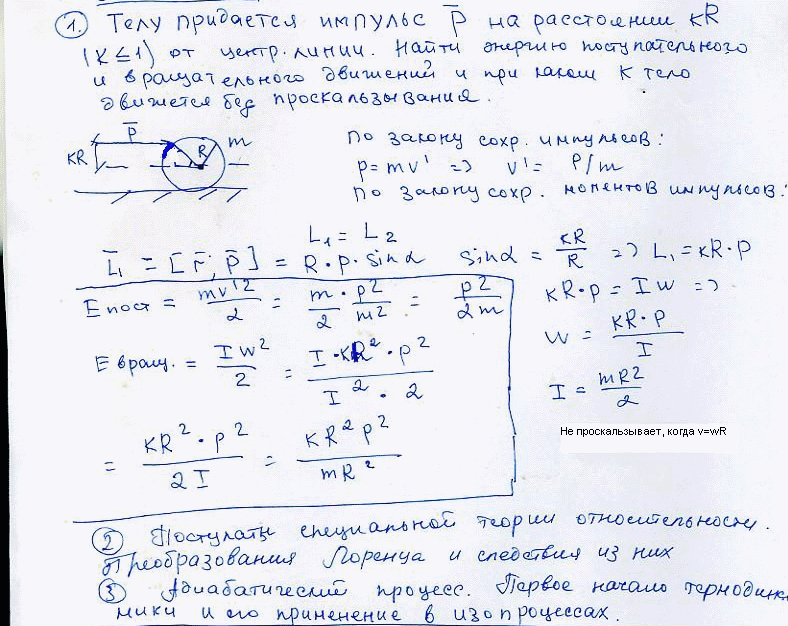 1. Телу придается импульс P̅ на расстоянии KR
(K ≤ 1) от центр. линии. Найти энергию поступательного
и вращательного движений и при каком K тело
движется без проскальзывания.
P̅
KR
R
m
По закону сохр. импульсов:
p = mv' => v' = P/m
По закону сохр. моментов импульсов:
L₁ = L₂
L̅₁ = [r̅; P̅] = R·P·sinα sinα = KR/R => L₁ = KR·P
E пост = mv'²/2 = m/2 · p²/m² = p²/2m
KR·p = Iw =>
w = KR·P/I
E вращ. = Iw²/2 = I·KR²·p²/I²·2
I = mR²/2
Не проскальзывает, когда v=wR
= KR²·p²/2I = KR²p²/mR²
2 Постулаты специальной теории относительности.
Преобразования Лоренца и следствия из них
3 Адиабатический процесс. Первое начало термодина-
мики и его применение в изопроцессах.